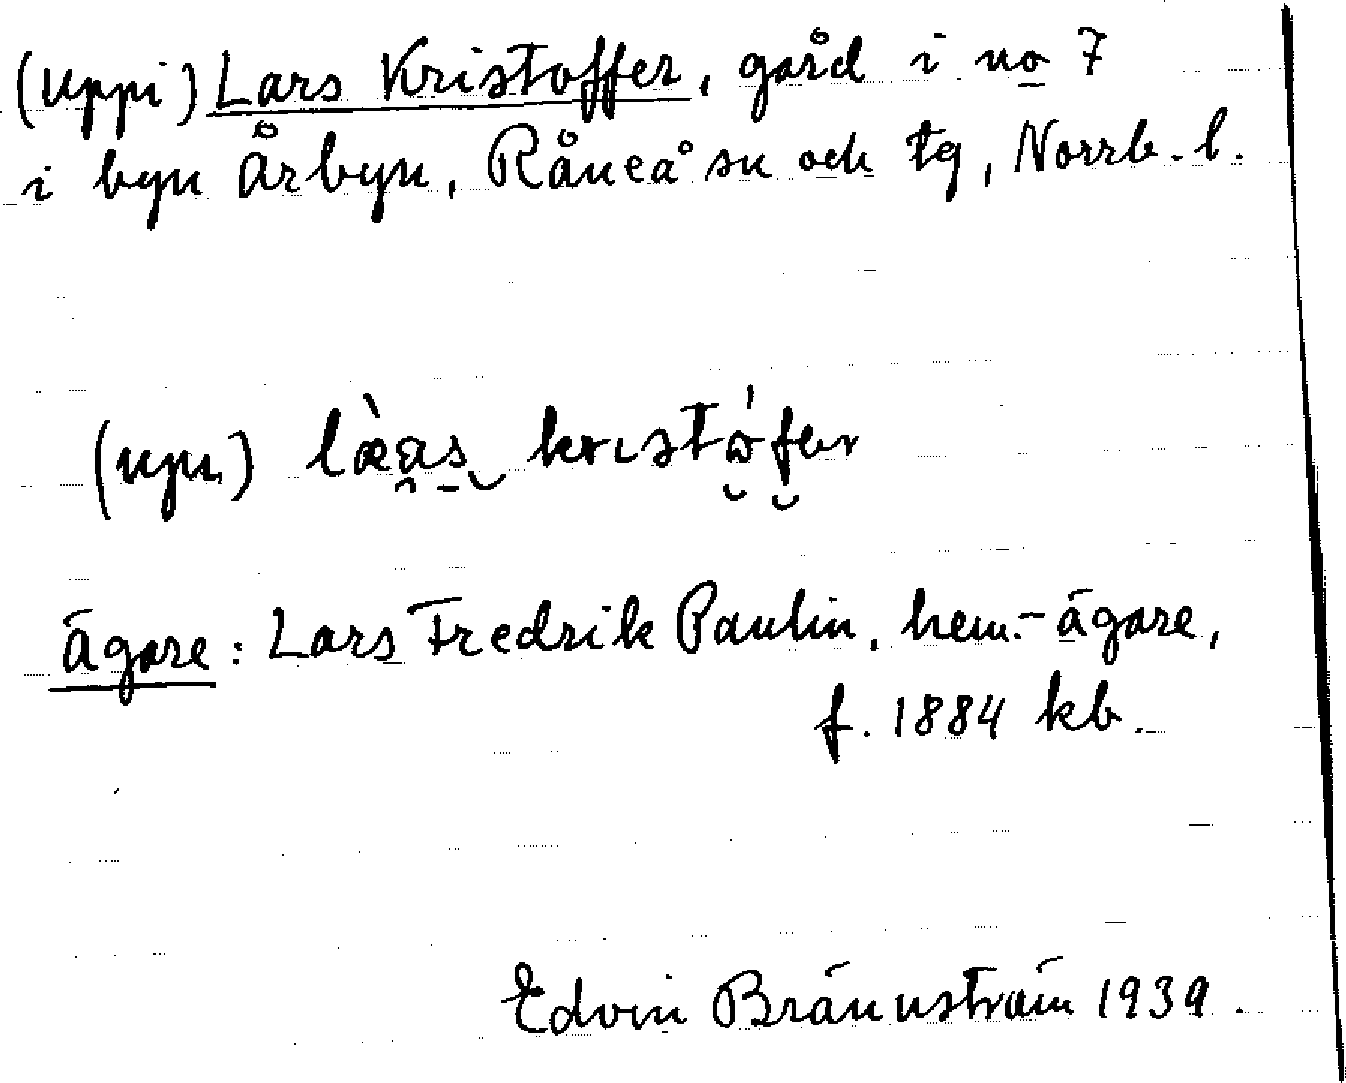 (Uppi) Lars Kristoffer, gård i no 7
i byn Årbyn, Råneå sn och tg, Norrb. l.
(upi) lὰas kristǿfer
ägare: Lars Fredrik Paulin, hem.-ägare,
f. 1884 kb.
Edvin Brännström 1939.